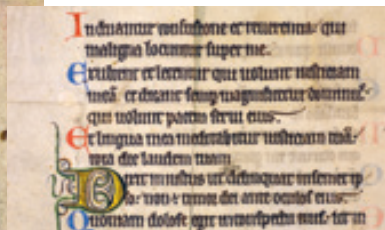 Induantur confusione et reuerentia. qui
maligna locuntur super me.
Exultent et letentur qui uolunt iusticiam
meā et dicant semp magnificetur dominus.
qui uolunt pacem serui eius.
Et lingua mea meditabitur iusticiam tuā.
tota die laudem tuam
Dixit iniustus ut delinquat in semet ip
so. non ē timor dei ante oculos eius.
Quoniam dolose egit in conspectu eius. ut in